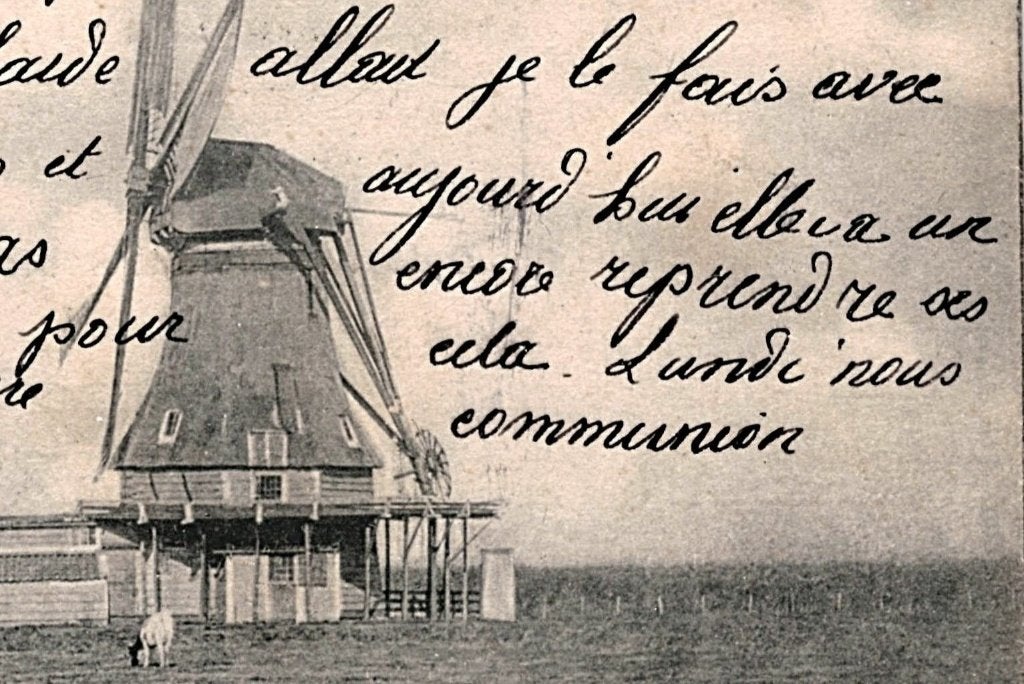 allant je le fais avec
et aujourd'hui elle va un
encore reprendre ses
pour cela. Lundi nous
communion